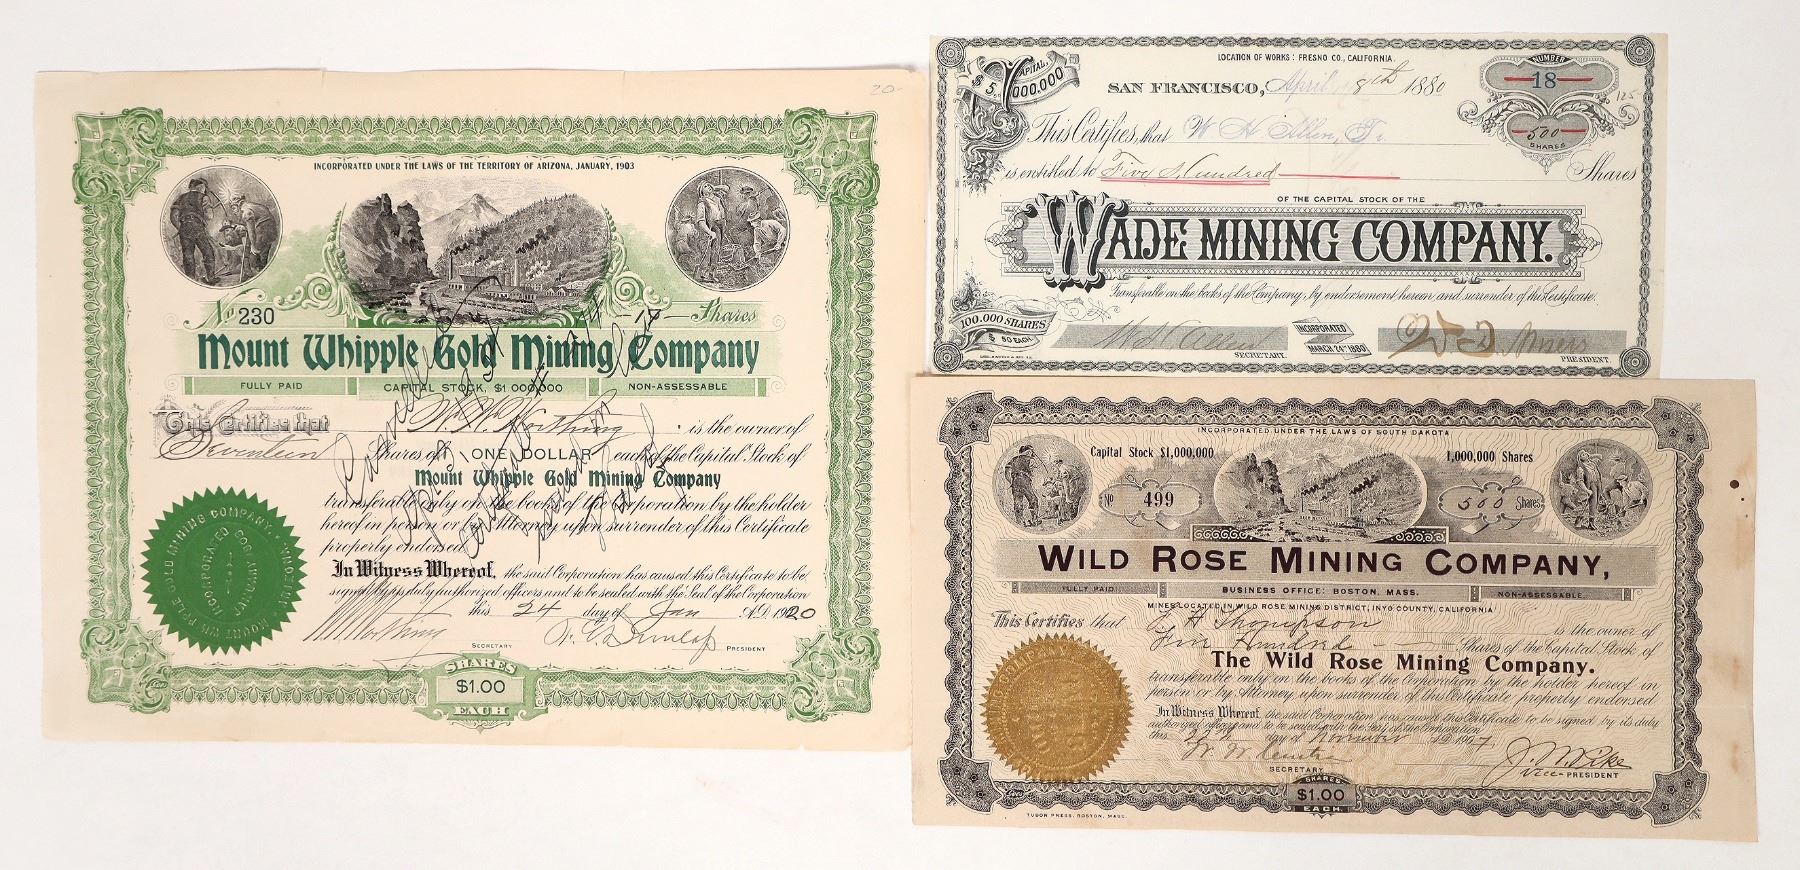 20-
INCORPORATED UNDER THE LAWS OF THE TERRITORY OF ARIZONA, JANUARY, 1903
No 230
Shares
Mount Whipple Gold Mining Company
FULLY PAID
CAPITAL STOCK, $1 000,000
NON-ASSESSABLE
This Certifies that is the owner of
Seventeen Shares of ONE DOLLAR each of the Capital Stock of
Mount Whipple Gold Mining Company
transferable only on the books of the Corporation by the holder
hereof in person or by Attorney upon surrender of this Certificate
properly endorsed.
In Witness Whereof, the said Corporation has caused this Certificate to be
signed by its duly authorized officers and to be sealed with the Seal of the Corporation
this 24 day of Jan A.D. 1920
Cancelled
SECRETARY
PRESIDENT
MOUNT WHIPPLE GOLD MINING COMPANY
INCORPORATED
ARIZONA
SHARES
$1.00
EACH
LOCATION OF WORKS: FRESNO CO., CALIFORNIA.
CAPITAL,
$5,000,000
SAN FRANCISCO, April 8th 1880
NUMBER
18
125
500
SHARES
This Certifies, that W H Allen, Jr.
is entitled to Five Hundred Shares
OF THE CAPITAL STOCK OF THE
WADE MINING COMPANY.
Transferable on the books of the Company, by endorsement hereon and surrender of this Certificate.
100.000 SHARES
$ 50 EACH.
SECRETARY.
INCORPORATED
MARCH 24TH 1880
PRESIDENT.
INCORPORATED UNDER THE LAWS OF SOUTH DAKOTA
Capital Stock $1,000,000
1,000,000 Shares
No 499
500 Shares
WILD ROSE MINING COMPANY,
FULLY PAID
BUSINESS OFFICE: BOSTON, MASS.
NON-ASSESSABLE
MINES LOCATED IN WILD ROSE MINING DISTRICT, INYO COUNTY, CALIFORNIA
This Certifies that H Thompson is the owner of
Five Hundred Shares of the Capital Stock of
The Wild Rose Mining Company.
transferable only on the books of the Corporation by the holder hereof in
person or by Attorney, upon surrender of this Certificate properly endorsed
In Witness Whereof, the said Corporation has caused this Certificate to be signed by its duly
authorized officers and to be sealed with the Seal of the Corporation
this day of November A.D. 1907
SECRETARY
VICE-PRESIDENT
SHARES
$1.00
EACH
TUDOR PRESS, BOSTON, MASS.